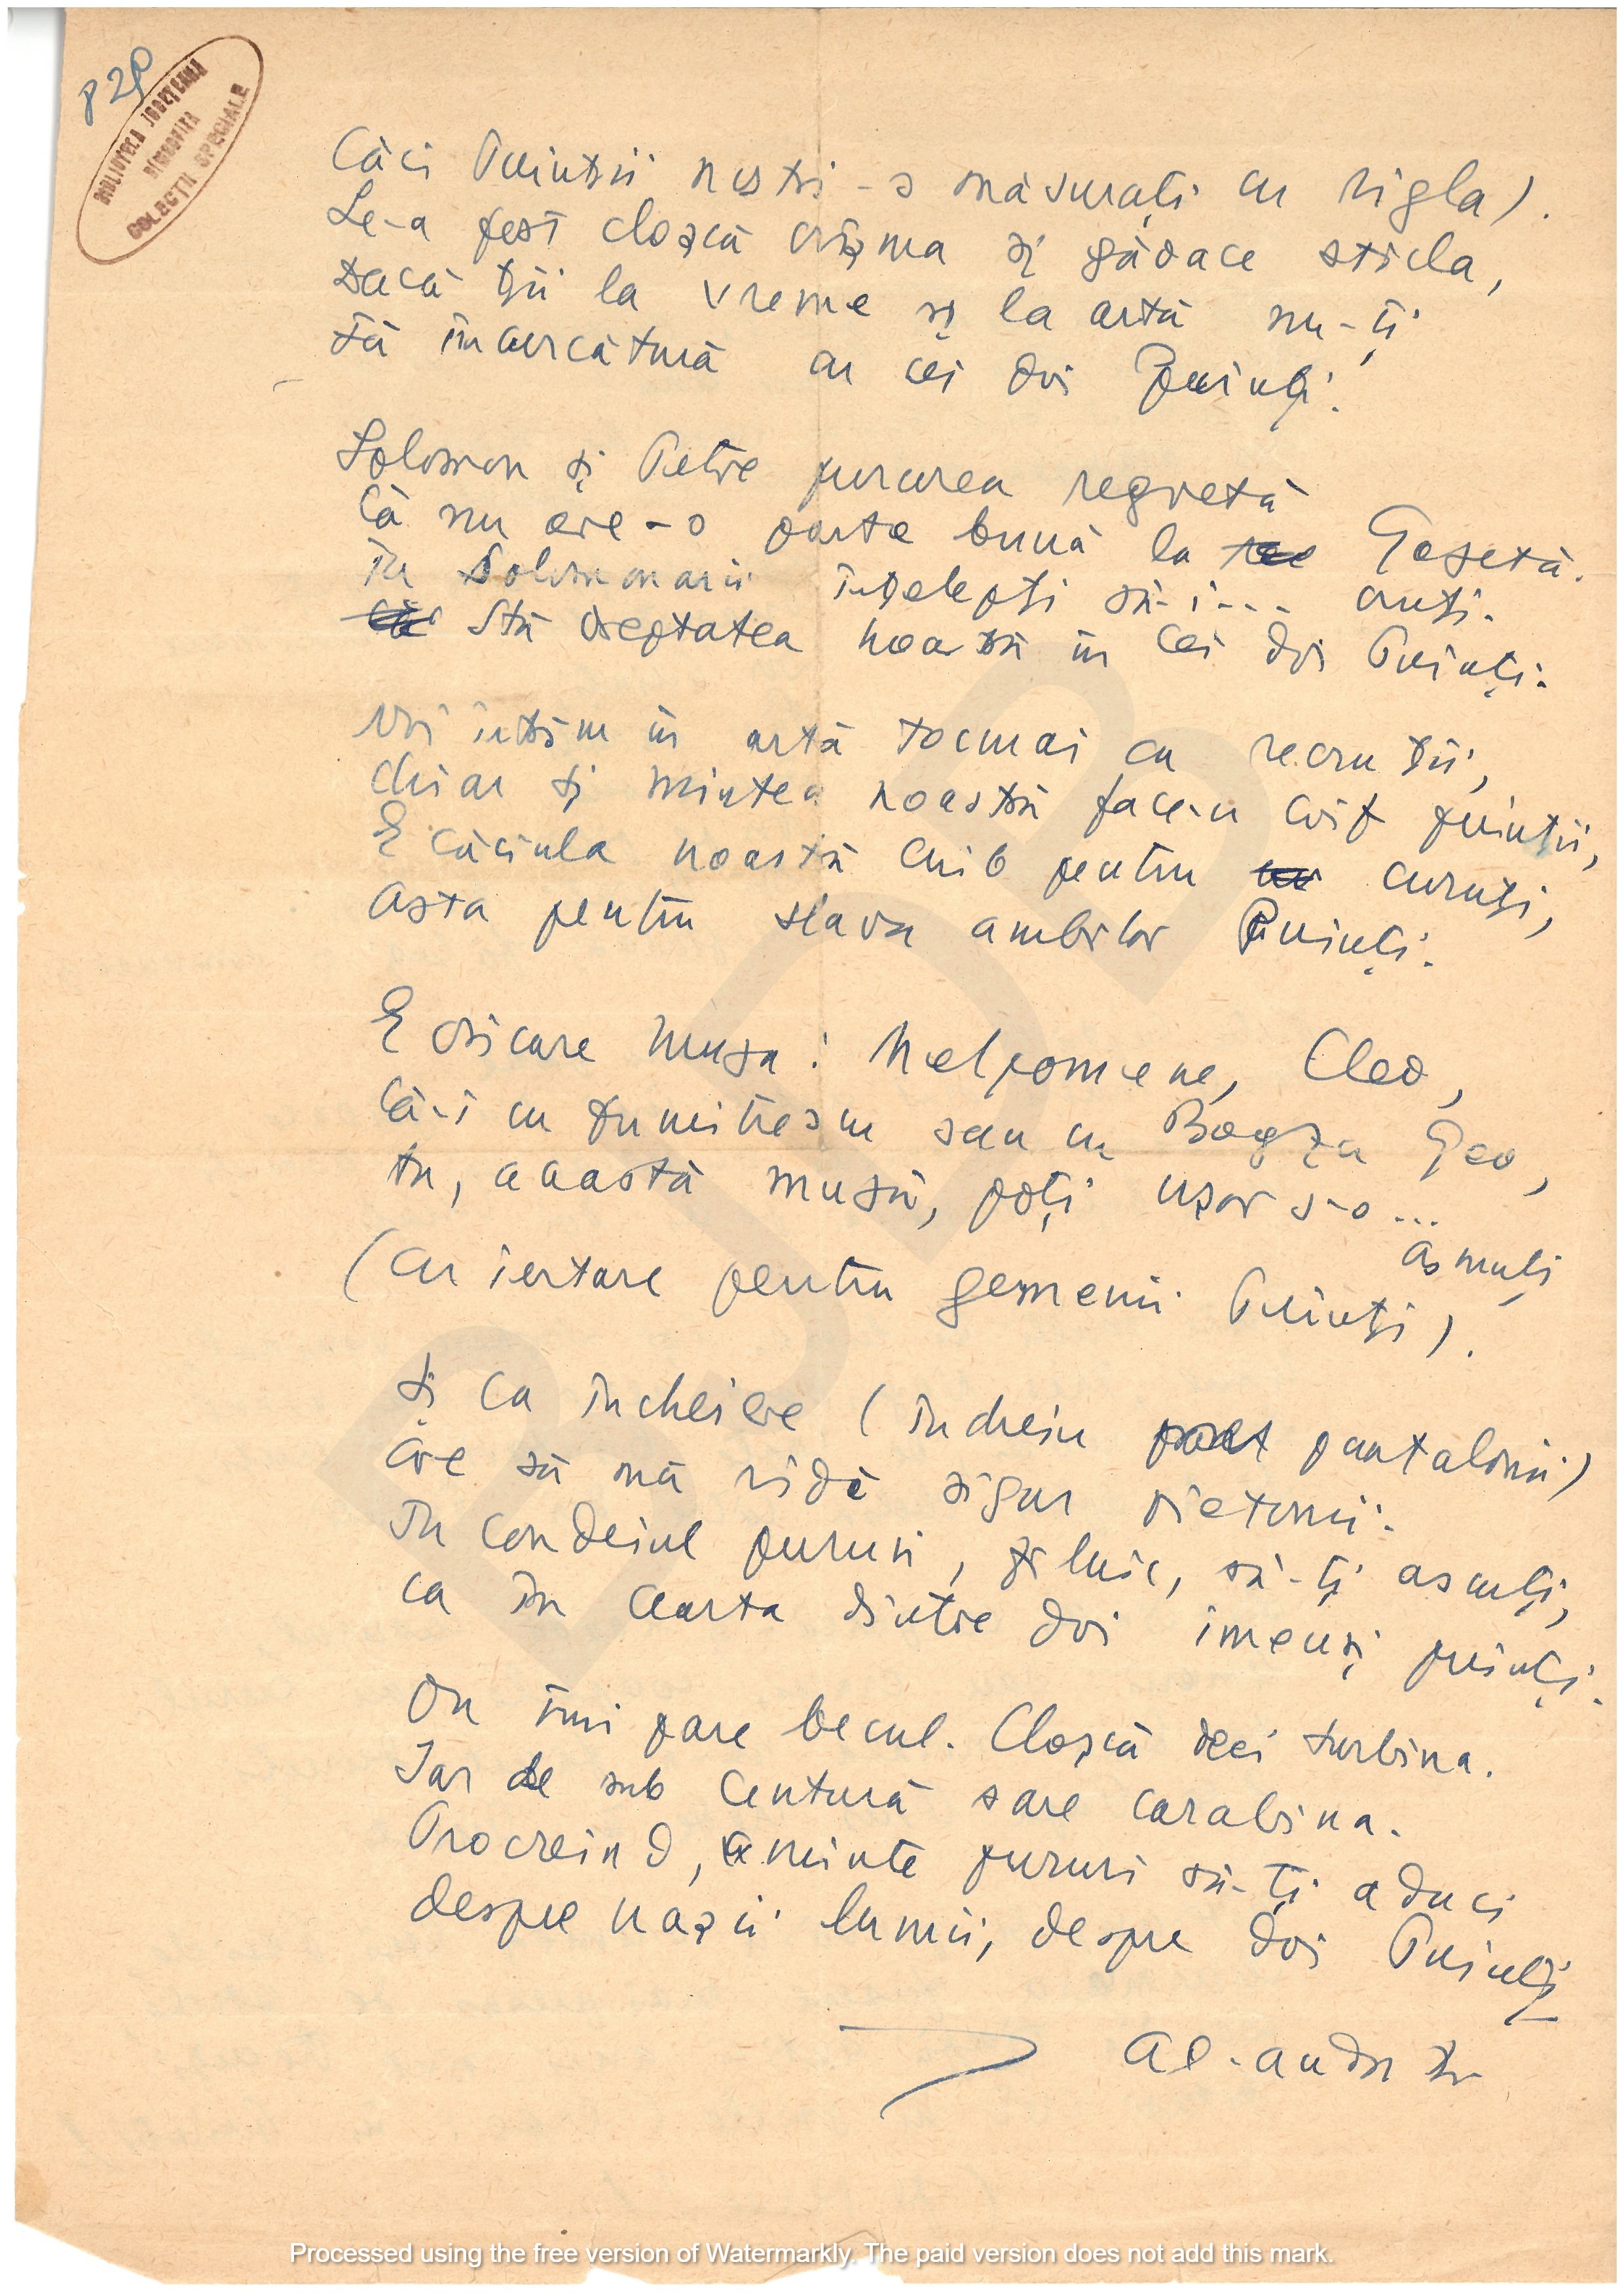 p 20
BIBLIOTECA JUDEŢEANĂ
DÎMBOVIŢA
COLECŢII SPECIALE
Căci Puinţii noştri-s măsuraţi cu rigla).
Le-a fost cloşcă crîşma şi gădace sticla,
Dacă ţii la vreme şi la artă nu-ţi
Dă încurcătură cu cei doi Puinţi.
Solomon şi Petre pururea regretă
Că nu are-o partă bună la Gazetă.
În Solomonarii înţelepţi să-i... cruţi.
Stă dreptatea noastră în cei doi Puinţi.
Noi intrăm în artă tocmai ca recruţii,
Chiar şi mintea noastră face-n coif puinţii,
E căciula noastră cuib pentru curuţi,
Asta pentru slava ambilor Puinţi.
E oricare muza: Melpomene, Cleo,
Că-i cu Dumitrescu sau cu Bogza Geo,
tu, această muză, poţi uşor s-o...
asmuţi
(cu iertare pentru gemenii Puinţi).
Şi ca încheiere (închein pantalonii)
Are să mă ridă sigur pietonii.
În condeiul pururi, zilnic, să-ţi asculţi,
ca în cearta dintre doi imenşi puinţi.
Ou îmi pare becul. Cloşcă deci turbina.
Iar de sub centură sare carabina.
Procreind, aminte pururi să-ţi aduci
despre naşii lumii, despre doi Puinţi
Al. Andri
Processed using the free version of Watermarkly. The paid version does not add this mark.